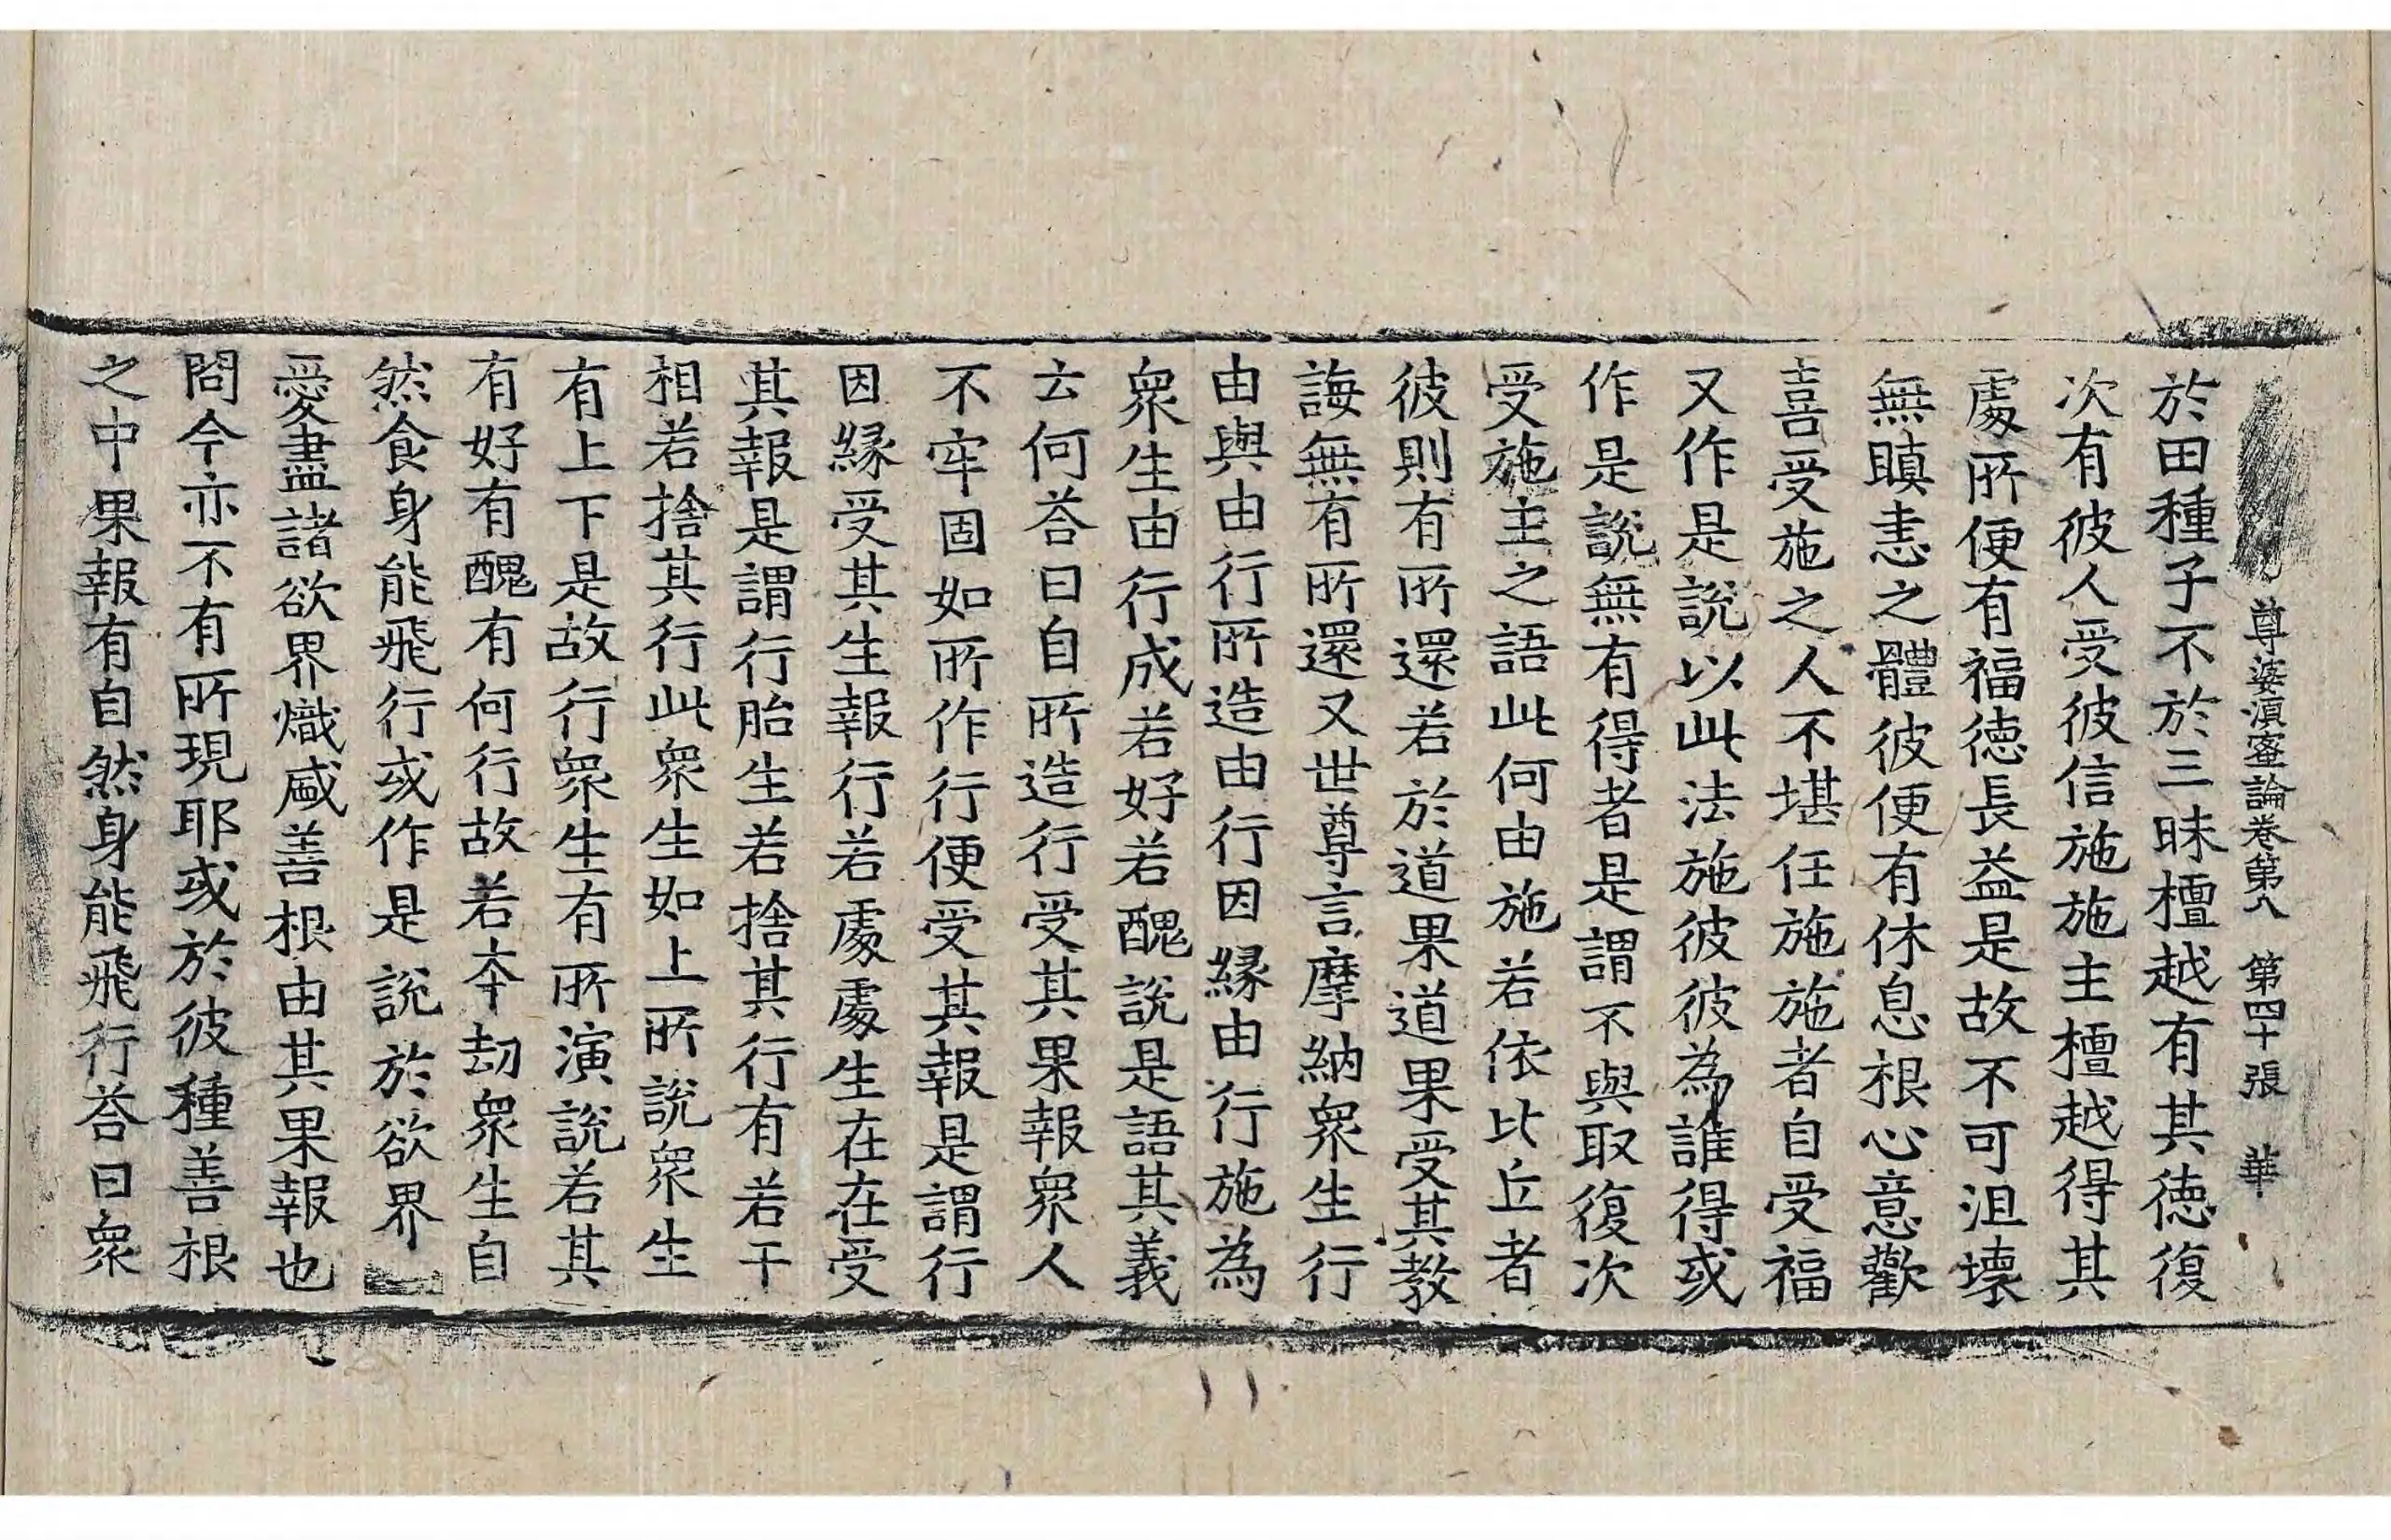 尊婆湏蜜論卷第八 第四十張 華
於田種子不於三昧檀越有其德復
次有彼人受彼信施施主檀越得其
處所便有福德長益是故不可沮壞
無瞋恚之體彼便有休息根心意歡
喜受施之人不堪任施施者自受福
又作是說以此法施彼彼為誰得或
作是說無有得者是謂不與取復次
受施主之語此何由施若依比丘者
彼則有所還若於道果道果受其教
誨無有所還又世尊言摩納衆生行
由與由行所造由行因緣由行施為
衆生由行成若好若醜說是語其義
云何荅曰自所造行受其果報衆人
不牢固如所作行便受其報是謂行
因緣受其生報行若處處生在在受
其報是謂行胎生若捨其行有若干
相若捨其行此衆生如上所說衆生
有上下是故行衆生有所演說若其
有好有醜有何行故若夲劫衆生自
然食身能飛行或作是說於欲界
愛盡諸欲界熾盛善根由其果報也
問今亦不有所現耶或於彼種善根
之中果報有自然身能飛行荅曰衆